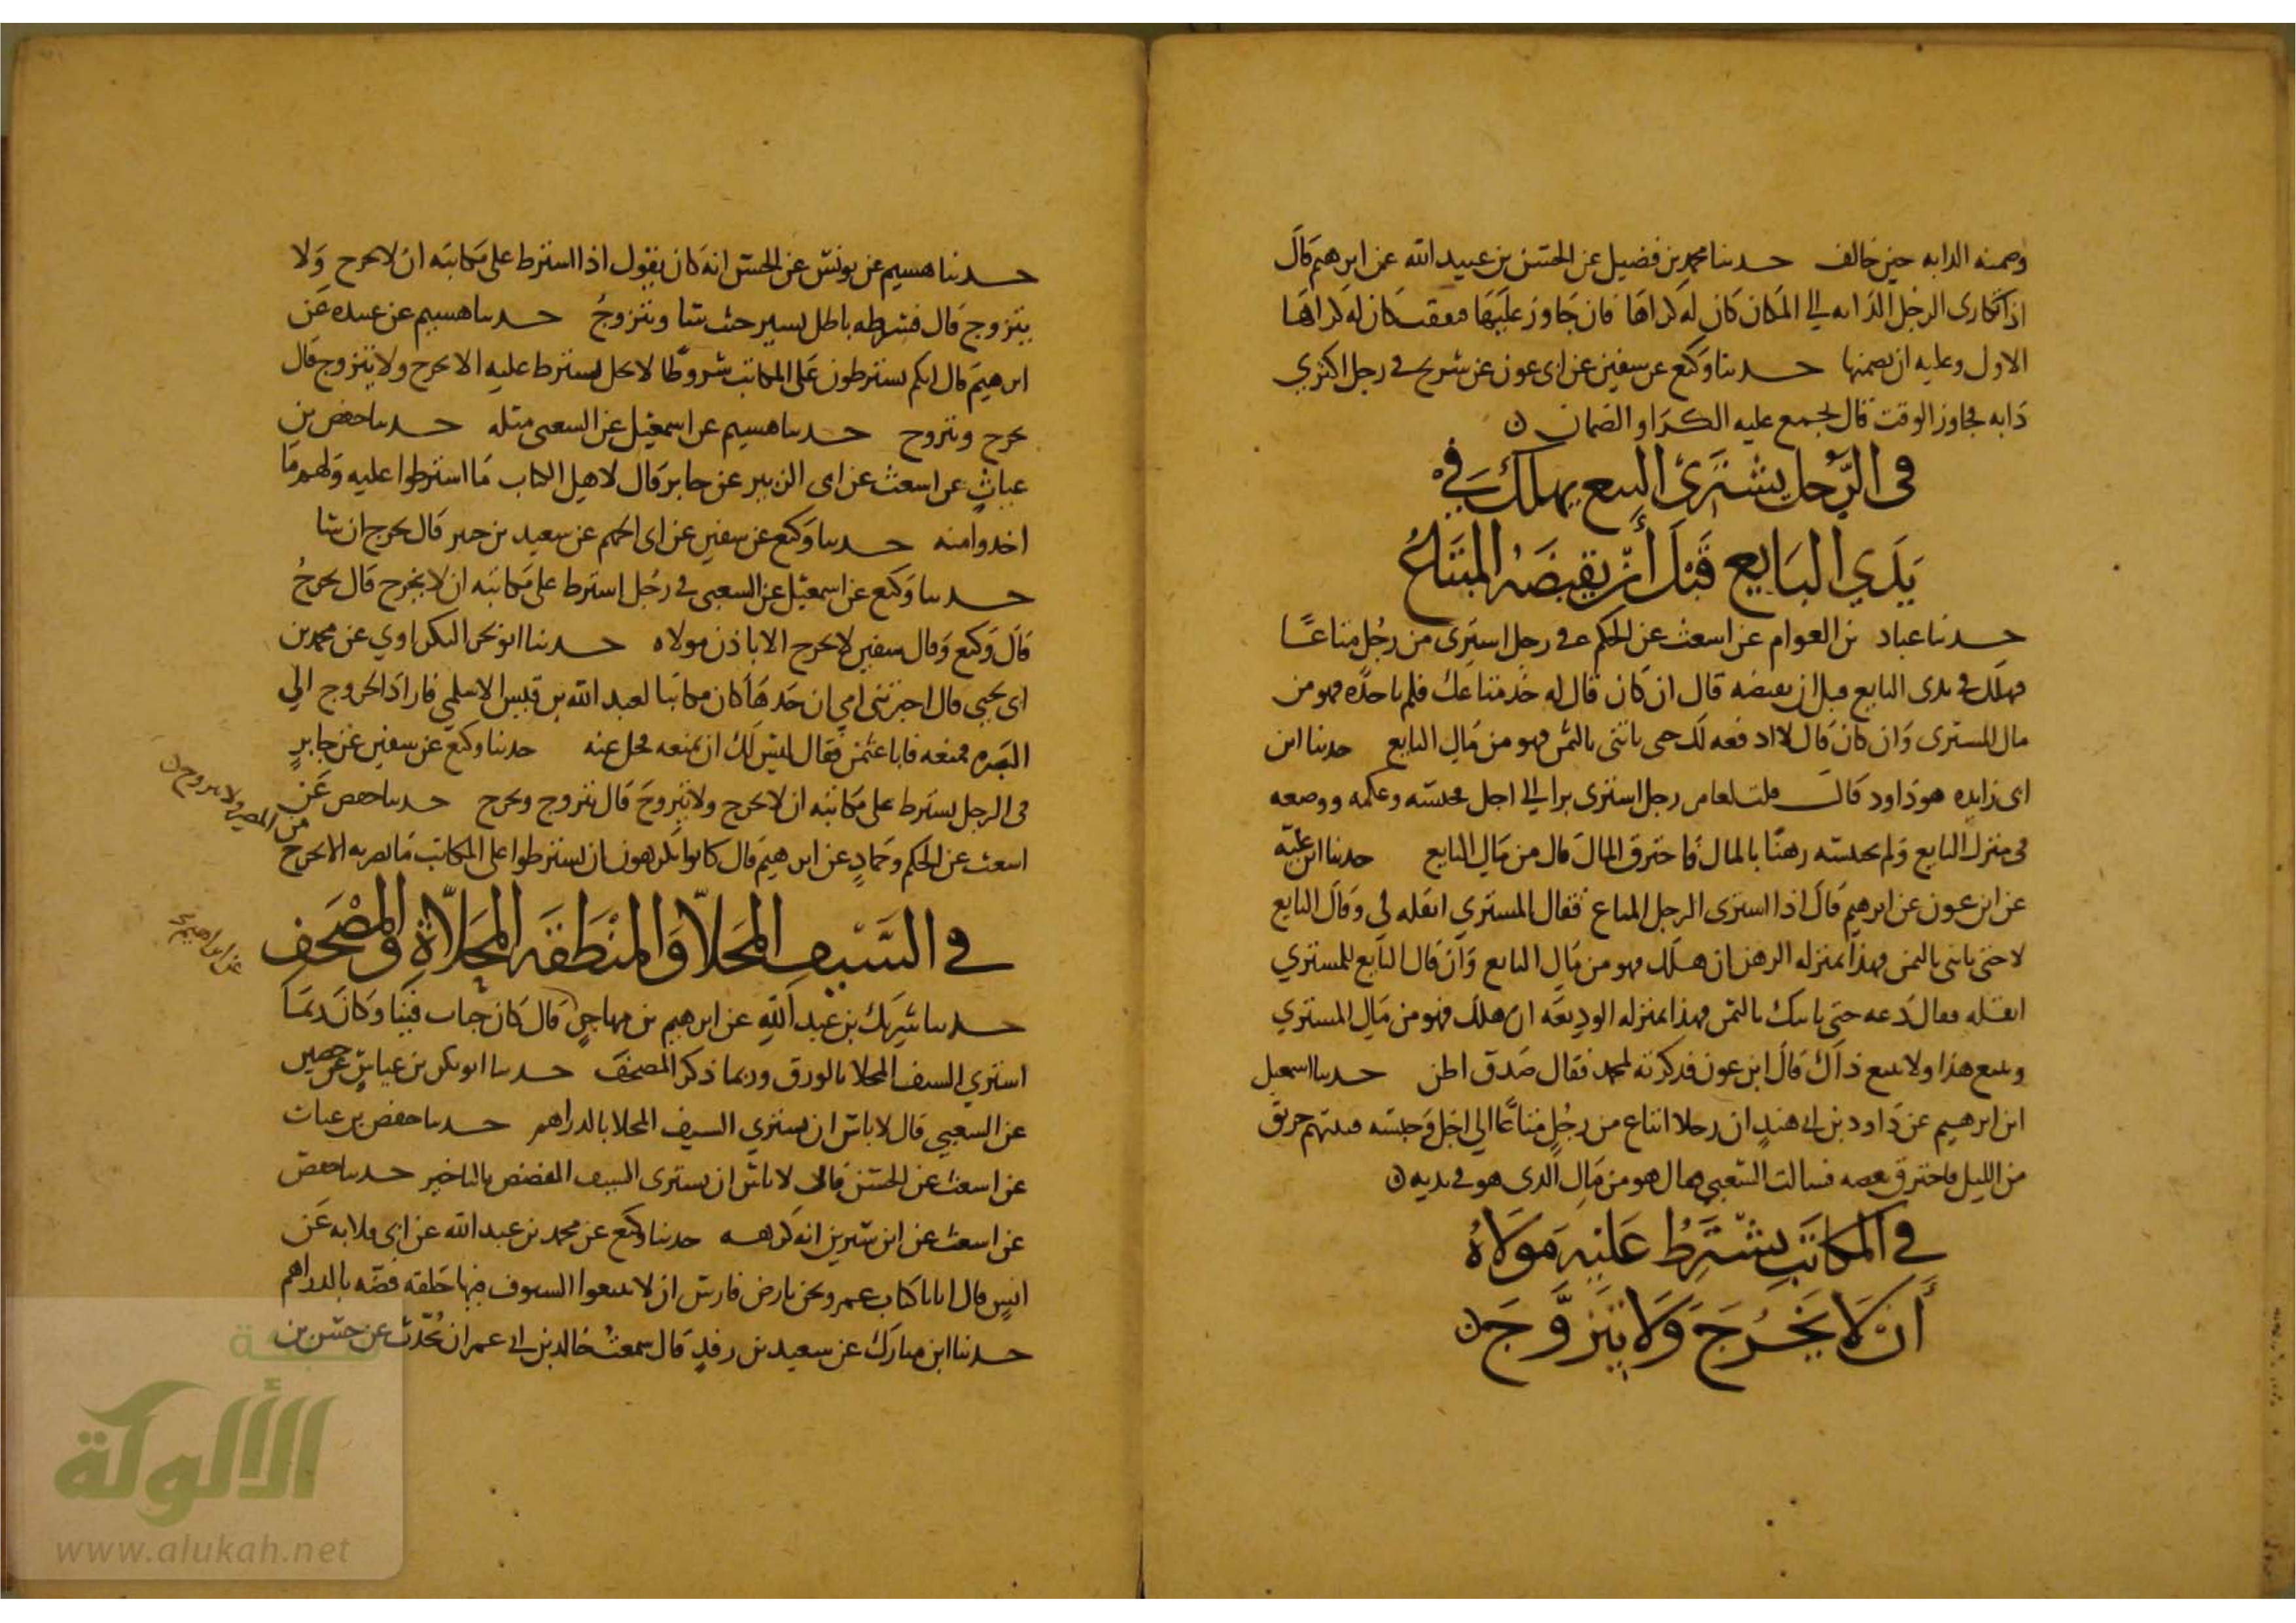 وضمنه الدابه حين خالف حدثنا محمد بن فضيل عن الحسن بن عبيد الله عن ابرهيم قال
اذا تكارى الرجل الدابه الي المكان كان له كراها فان جاوز عليها فنفقت كان له كراها
الاول وعليه ان يضمنها حدثنا وكيع عن سفين عن ابى عون عن شريح في رجل اكترى
دابه فجاوز الوقت قال يجمع عليه الكرا والضمان
فى الرجل يشترى البيع يهلك في
يدي البايع قبل أن يقبضه المبتاع
حدثنا عباد بن العوام عن اسعث عن الحكم في رجل استرى من رجل متاعا
فهلك في يدى البايع قبل ان يقبضه قال ان كان قال له خذ متاعك فلم ياخذه فهو من
مال المسترى وان كان قال لا ادفعه لك حتى ياتنى بالثمن فهو من مال البايع حدثنا ابن
ابى زايده هو داود قال قلت لعامر رجل استرى برا الي اجل فحبسه وعكمه ووضعه
فى منزل البايع ولم يحبسه رهنا بالمال فاحترق المال قال من مال البايع حدثنا ابن علية
عن ابن عون عن ابرهيم قال اذا استرى الرجل المتاع فقال المسترى انقله لي وقال البايع
لا حتى ياتنى بالثمن فهذا بمنزله الرهن ان هلك فهو من مال البايع وان قال البايع للمستري
انقله فقال دعه حتى ياتيك بالثمن فهذا بمنزله الوديعه ان هلك فهو من مال المستري
وبيع هذا ولا بيع ذاك قال ابن عون فذكرته لمحمد فقال صدق اظن حدثنا اسمعيل
ابن ابرهيم عن داود بن ابي هند ان رجلا ابتاع من رجل متاعا الي اجل وحبسه فبيتهم حريق
من الليل فاحترق بعضه فسالت الشعبي فقال هو من مال الذى هو في يديه
في المكاتب يشترط عليه مولاه
أن لا يخرج ولا يتزوج
حدثنا هسيم عن يونس عن الحسن انه كان يقول اذا استرط على مكاتبه ان لا يخرج ولا
يتزوج قال فشرطه باطل يسير حيث شا ويتزوج حدثنا هسيم عن عبيده عن
ابرهيم قال انكم تشترطون على المكاتب شروطا لا تحل يشترط عليه الا يخرج ولا يتزوج قال
يخرج ويتزوج حدثنا هسيم عن اسمعيل عن السعبى مثله حدثنا حفص بن
غياث عن اسعث عن ابى الزبير عن جابر قال لاهل الكتاب ما استرطوا عليه ولهم ما
اخذوا منه حدثنا وكيع عن سفين عن ابى الجهم عن سعيد بن جبير قال يخرج ان شا
حدثنا وكيع عن اسمعيل عن السعبى في رجل استرط على مكاتبه ان لا يخرج قال يخرج
قال وكيع وقال سفين لا يخرج الا باذن مولاه حدثنا ابو بحر البكراوي عن محمد بن
ابى يحيى قال اخبرتنى امي ان جدها كان مكاتبا لعبد الله بن قيس الاسلمي فاراد الخروج الي
البصره فمنعه فاتا عثمن فقال ليس لك ان تمنعه فخل عنه حدثنا وكيع عن سفين عن جابر
فى الرجل يسترط على مكاتبه ان لا يخرج ولا يتزوج قال يتزوج ويخرج حدثنا حفص عن
اسعث عن الحكم وحماد عن ابرهيم قال كانوا يكرهون ان يسترطوا على المكاتب ما يضر به الا يخرج
من المصر ولا يتزوج
في السيف المحلا والمنطقه المحلاة والمصحف
حدثنا شريك بن عبد الله عن ابرهيم بن مهاجر قال كان خباب قينا وكان ربما
عن ابراهيم
استري السيف المحلا بالورق وربما ذكر المصحف حدثنا ابو بكر بن عياش عن حصين
عن السعبي قال لا باس ان يستري السيف المحلا بالدراهم حدثنا حفص بن غياث
عن اسعث عن الحسن قال لا باس ان يسترى السيف المفضض بالتاخير حدثنا حفص
عن اسعث عن ابن سيرين انه كرهه حدثنا وكيع عن محمد بن عبد الله عن ابى قلابه عن
انس قال اتانا كتاب عمر ونحن بارض فارس ان لا تبيعوا السيوف فيها حلقه فضه بالدراهم
حدثنا ابن مبارك عن سعيد بن يزيد قال سمعت خالد بن ابي عمران يحدث عن حنش بن
شبكة
الألوكة
www.alukah.net